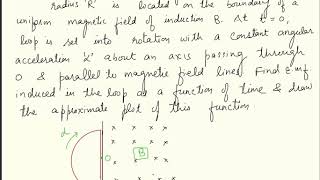 radius 'R' is located on the boundary of a
uniform magnetic field of induction B. At t = 0,
loop is set into rotation with a constant angular
acceleration 'α' about an axis passing through
O & parallel to magnetic field lines. Find emf
induced in the loop as a function of time & draw
the approximate plot of this function
α
O
B